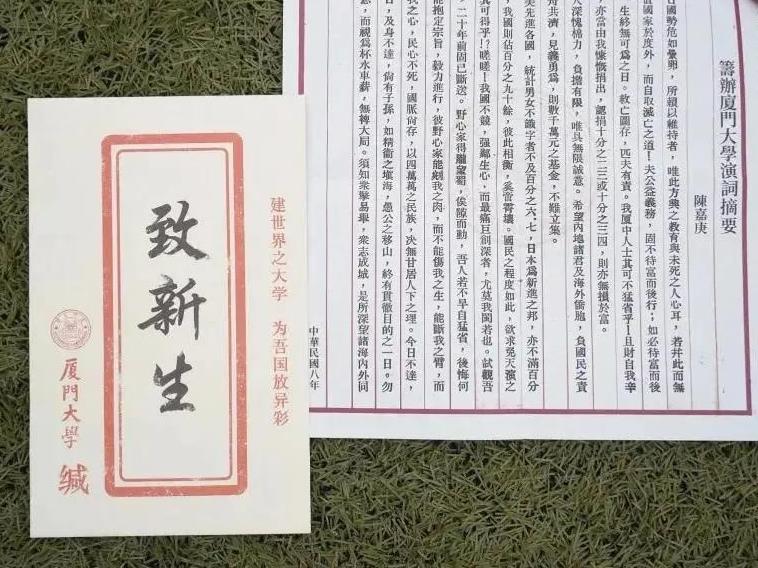 建世界之大学 为吾国放异彩
致新生
厦門大學 缄
籌辦廈門大學演詞摘要
陳嘉庚
日國勢危如纍卵，所賴以維持者，唯此方興之教育與未死之人心耳，若并此而無
國家於度外，而自取滅亡之道！夫公益義務，固不待富而後行；如必待富而後
生終無可爲之日。救亡圖存，匹夫有責。我廈中人士其可不猛省乎！且財自我辛
亦當由我慷慨捐出，認捐十分之二三或十分之三四，則亦無損於富。
人深愧棉力，負擔有限，唯具無限誠意。希望內地諸君及海外僑胞，負國民之責
共濟，見義勇爲，則數千萬元之基金，不難立集。
美先進各國，統計男女不識字者不及百分之六、七，日本爲新進之邦，亦不滿百分
我國則佔百分之九十餘，彼此相衡，奚啻霄壤。國民之程度如此，欲求免天演之
其可得乎！？嗟嗟！我國不競，強鄰生心，而最痛巨創深者，尤莫我閩若也。試觀吾
二十年前固已斷送。野心家得隴望蜀，俟隙而動，吾人若不早自猛省，後悔何
能抱定宗旨，毅力進行，彼野心家能剜我之肉，而不能傷我之生，能斷我之臂，而
我之心，民心不死，國脈尚存，以四萬萬之民族，決無甘居人下之理。今日不達，
日，及身不達，尚有子孫，如精衞之塡海，愚公之移山，終有貫徹目的之一日。勿
，而視爲杯水車薪，無裨大局。須知衆擎易舉，衆志成城，是所深望諸海內外同
中華民國八年